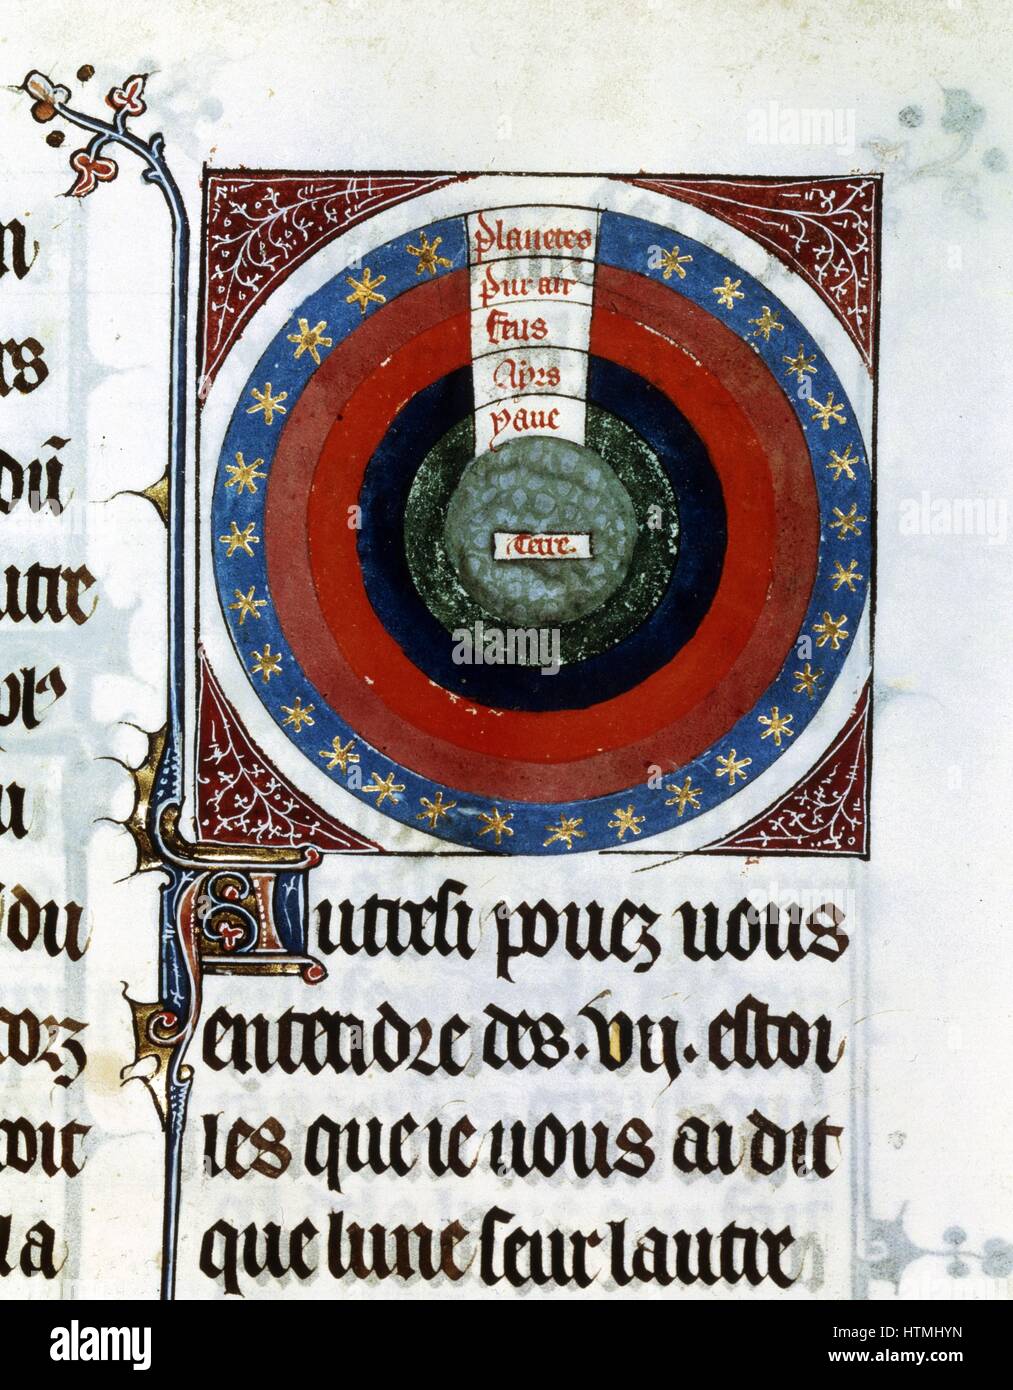 planetes
pur air
feus
Ayrs
yaue
terre.
n
rs
dū
utre
u
du
orz
oit
la
Autresi pouez uous
entendre des .vij. estoi
les que ie uous ai dit
que lune seur lautre
alamy
alamy
alamy
a
a
a
alamy
Image ID: HTMHYN
www.alamy.com